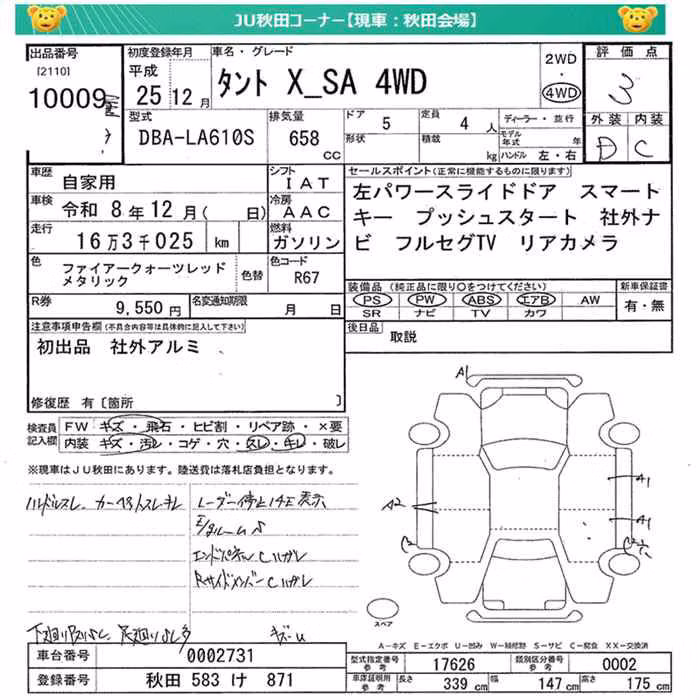 JU秋田コーナー【現車：秋田会場】
出品番号
[2110]
10009
初度登録年月
平成
25 12月
車名・グレード
タント X_SA 4WD
2WD
・
4WD
評価点
3
型式
DBA-LA610S
排気量
658
CC
ドア
5
形状
定員
4 人
積載
kg
ディーラー・並行
モデル年式 年
ハンドル 左・右
外装 内装
D C
車歴
自家用
シフト
IAT
車検
令和 8年12月( 日)
冷房
AAC
走行
16万3千025 km
燃料
ガソリン
セールスポイント(正常に機能するものに限ります)
左パワースライドドア スマート
キー プッシュスタート 社外ナ
ビ フルセグTV リアカメラ
色
ファイアークォーツレッド
メタリック
色替
色コード
R67
装備品 (純正品に限り○をつけてください)
PS PW ABS エアB AW
SR ナビ TV カワ
新車保証書
有・無
R券
9,550 円
名変通知期限
月 日
後日品
取説
注意事項申告欄(不具合内容等は具体的に記入して下さい)
初出品 社外アルミ
修復歴 有〔箇所 〕
検査員
記入欄
FW キズ・飛石・ヒビ割・リペア跡・×要
内装 キズ・汚レ・コゲ・穴・スレ・キレ・破レ
※現車はJU秋田にあります。陸送費は落札店負担となります。
ハンドルスレ、カーペットスレキレ
レーダー停止 イエ 表示
エンドパネルCハガレ
RサイドメンバーCハガレ
キズU
A1
A2
A1
A1
C2
スペア
A-キズ E-エクボ U-凹み W-補修跡 S-サビ C-腐食 XX-交換済
車台番号
0002731
登録番号
秋田 583 け 871
型式指定番号
参考
17626
類別区分番号
参考
0002
車庫証明用
参考
長さ
339 cm
幅
147 cm
高さ
175 cm